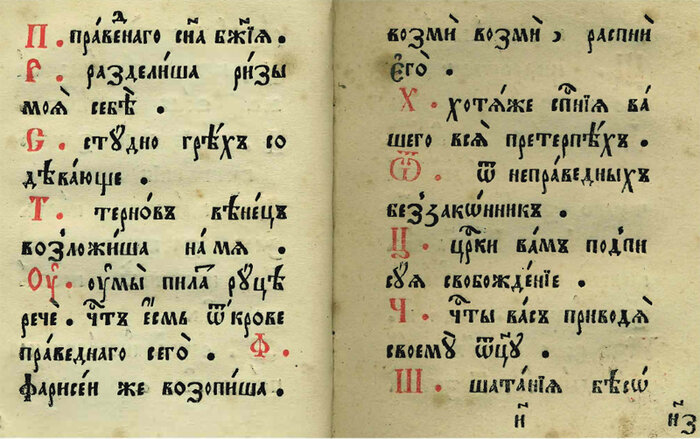 П. пра́веⷣнаго сн҃а бж҃їѧ.
Р. разделиша ризы
моѧ̀ себѣ̀.
С. стꙋдно грѣхъ со
дѣвающе.
Т. терно́въ вѣне́цъ
возложиша на мѧ.
Оу҆. оу҆мы̀ пила́т рꙋцѣ
рече. чⷭ҇тъ є҆смь ѿ кро́ве
пра́веднаго сего̀. Ф.
фарисе́и же возопиша.
возмѝ возмѝ, распнѝ
є҆го̀.
Х. хотѧ́же сп҃нїѧ ва́
шего всѧ̀ претерпѣ́хъ.
Ѿ. ѿ непра́ведныхъ
беззако́нникъ.
Ц. цр҃кѝ ва́мъ подпи
сꙋѧ свобожде́нїе.
Ч. чⷭ҇ты ва́съ приводѧ̀
своемꙋ̀ ѻ҆ц҃ꙋ̀.
Ш. шата́нїѧ бѣсѡ́
и҃ н҃з